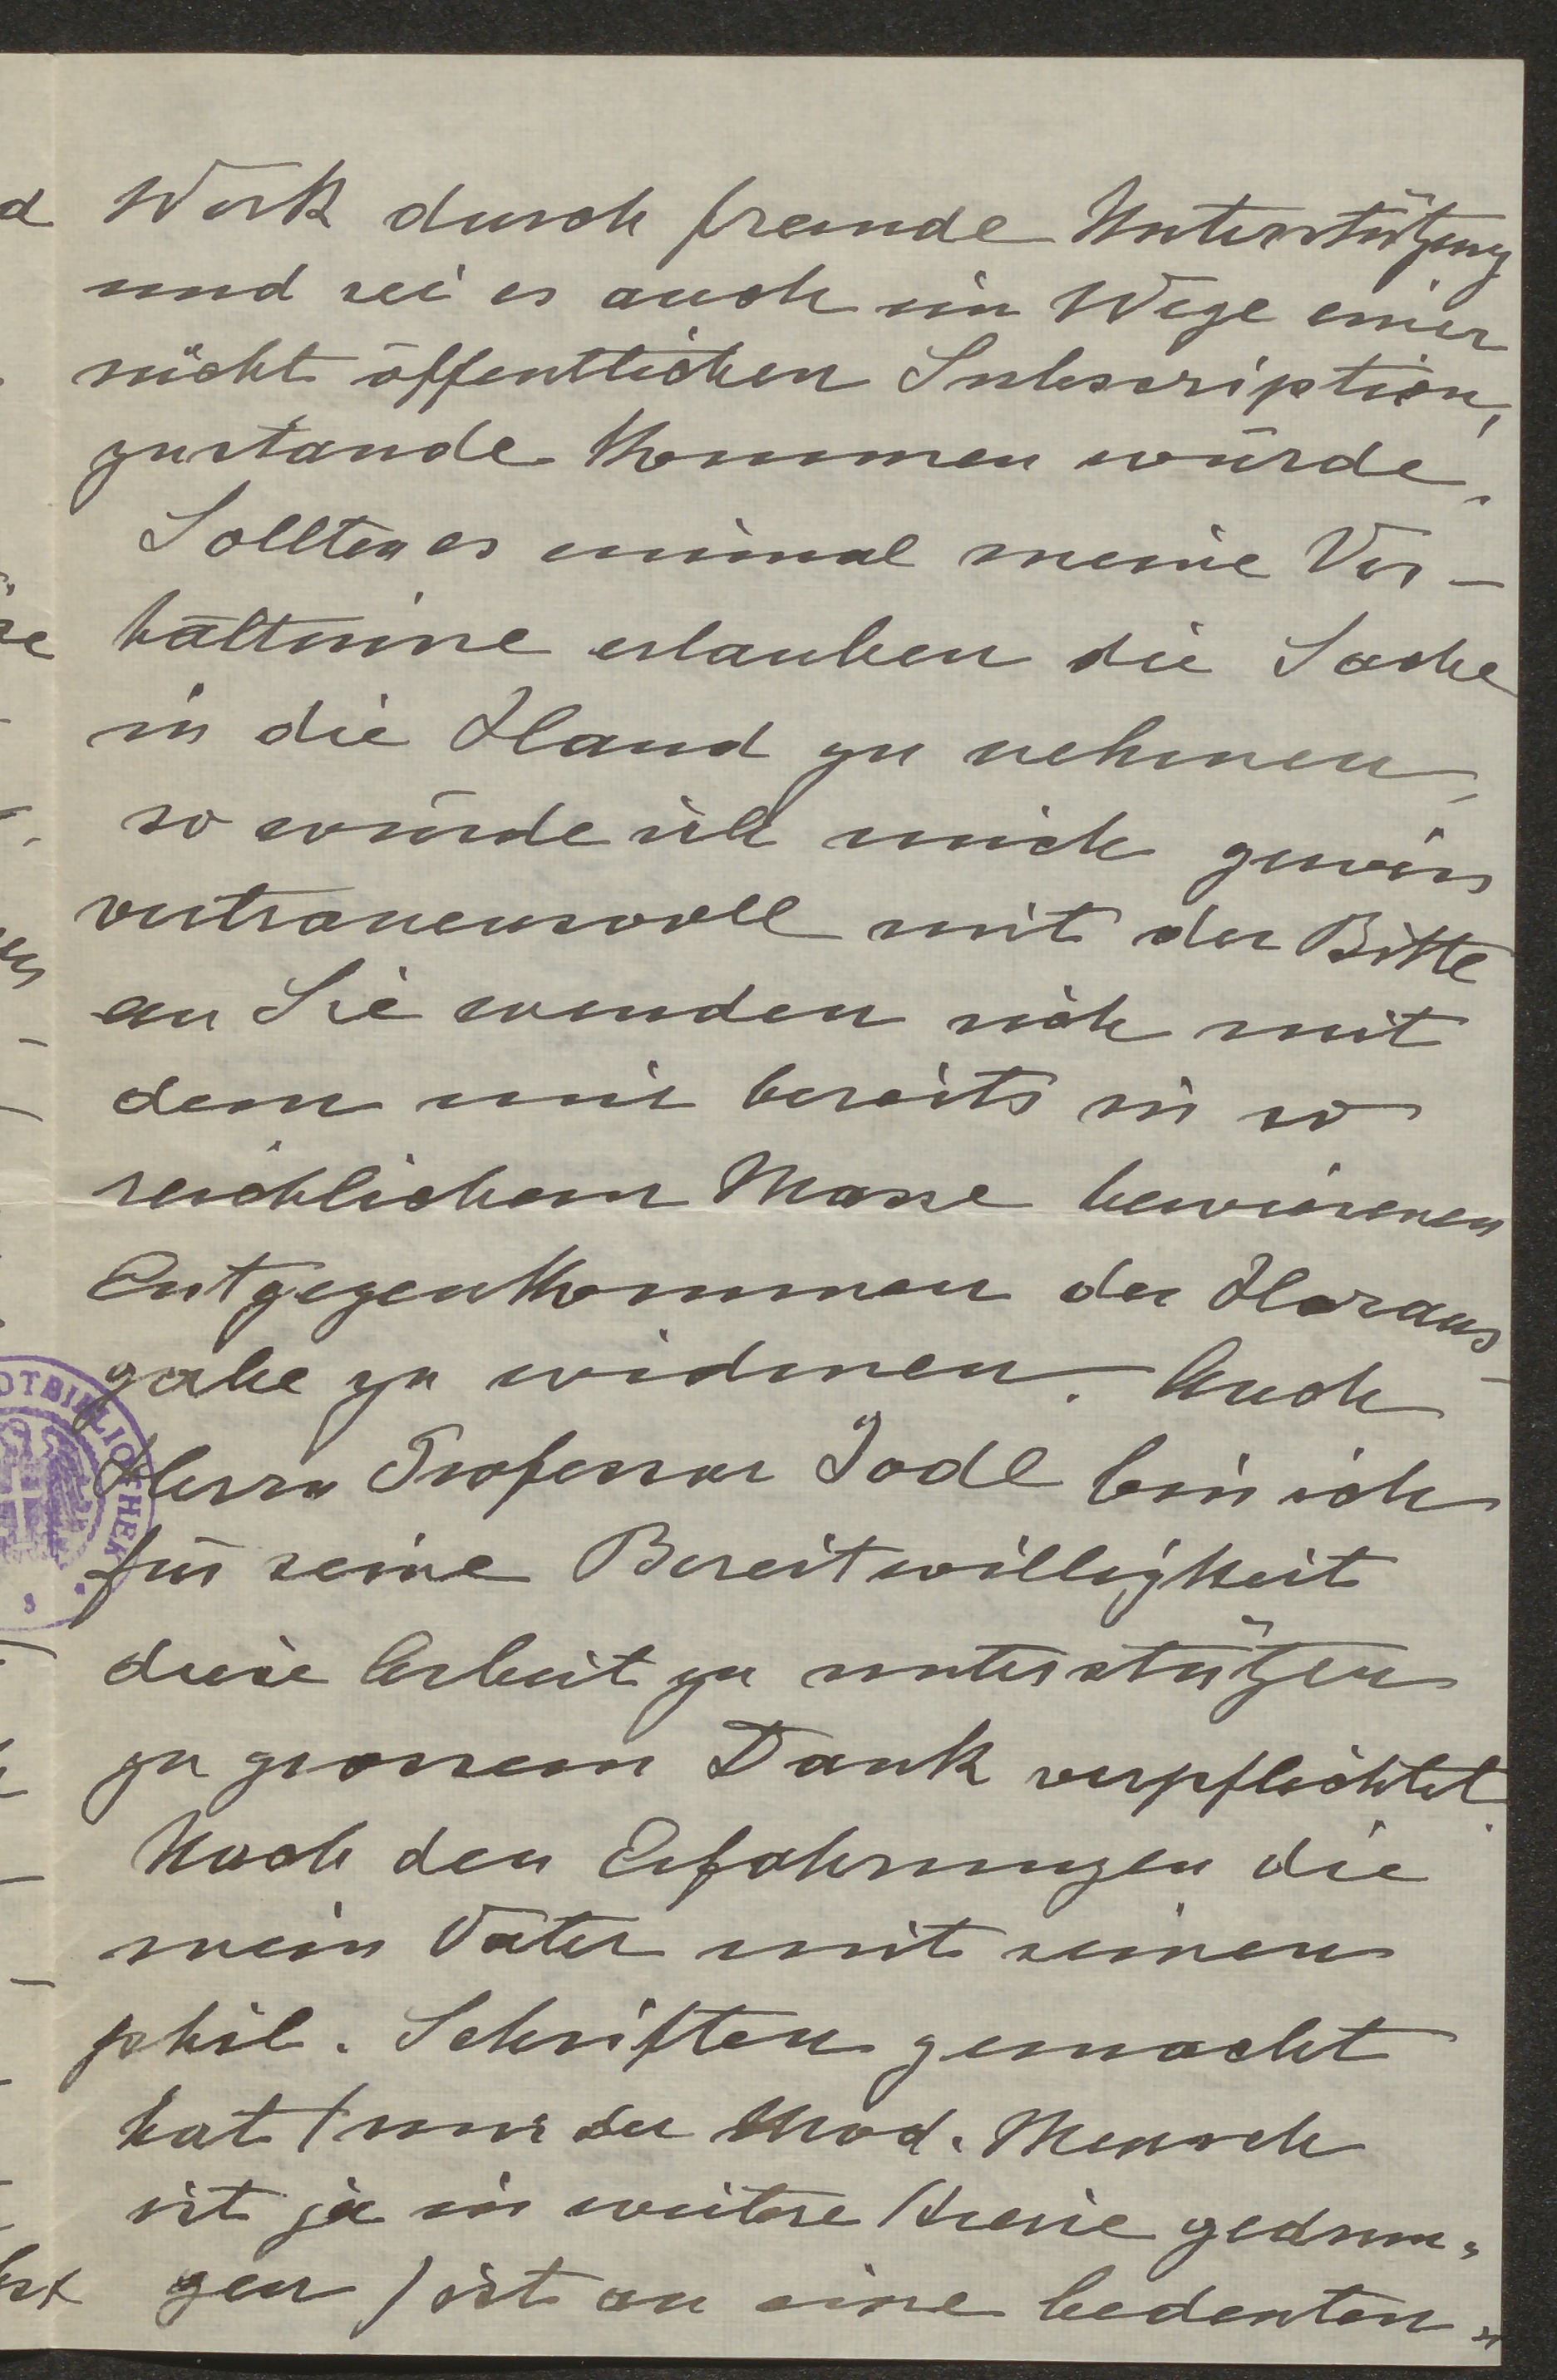 Werk durch fremde Unterstützung
und sei es auch im Wege einer
nicht öffentlichen Subscription,
zustande kommen würde.
Sollten es einmal meine Ver-
hältnisse erlauben die Sache
in die Hand zu nehmen,
so würde ich mich gewiss
vertrauensvoll mit der Bitte
an Sie wenden sich mit
dem mir bereits in so
reichlichem Masse bewiesenen
Entgegenkommen der Heraus-
gabe zu widmen. Auch
Herrn Professor Jodl bin ich
für seine Bereitwilligkeit
diese Arbeit zu unterstützen
zu grossem Dank verpflichtet.
Nach den Erfahrungen die
mein Vater mit seinen
phil. Schriften gemacht
hat (nur der Mod. Mensch
ist ja in weitere Kreise gedrun-
gen) ist an eine bedeuten-